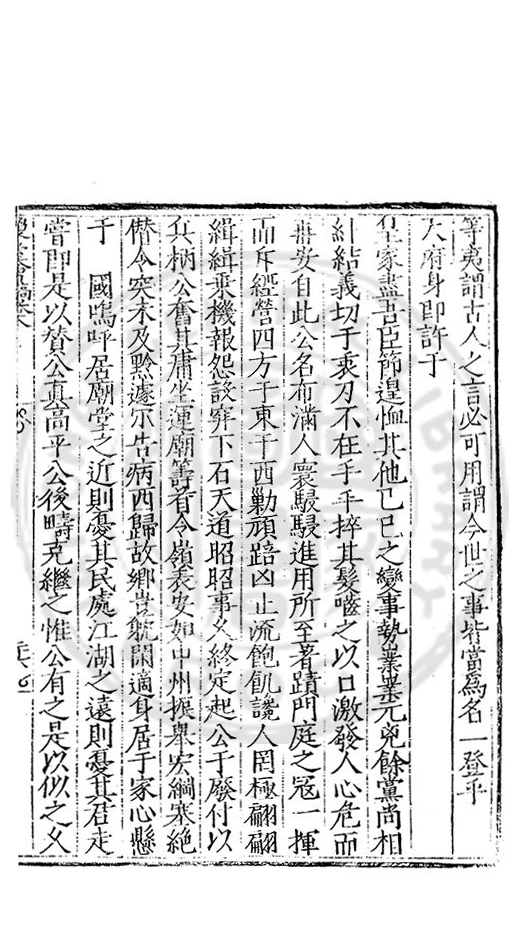 等夷謂古人之言必可用謂今世之事皆當為名一登乎
天府身即許于
皇家盡吾臣節遑恤其他己巳之變事執業業元兇餘黨尚相
糾結義切于衷刃不在手手捽其髮噬之以口激發人心危而
再安自此公名布滿人寰駸駸進用所至著蹟門庭之寇一揮
而斥經營四方于東于西勦頑踣凶止流飽飢讒人罔極翩翩
緝緝乘機報怨設穽下石天道昭昭事久終定起公于廢付以
兵柄公奮其庸坐運廟籌省令嶺表安如中州振舉宏綱塞絕
僭令突未及黔遽尔告病西歸故鄉豈躭閑適身居于家心懸
于 國嗚呼居廟堂之近則憂其民處江湖之遠則憂其君走
嘗即是以賛公真高平公後疇克繼之惟公有之是以似之父